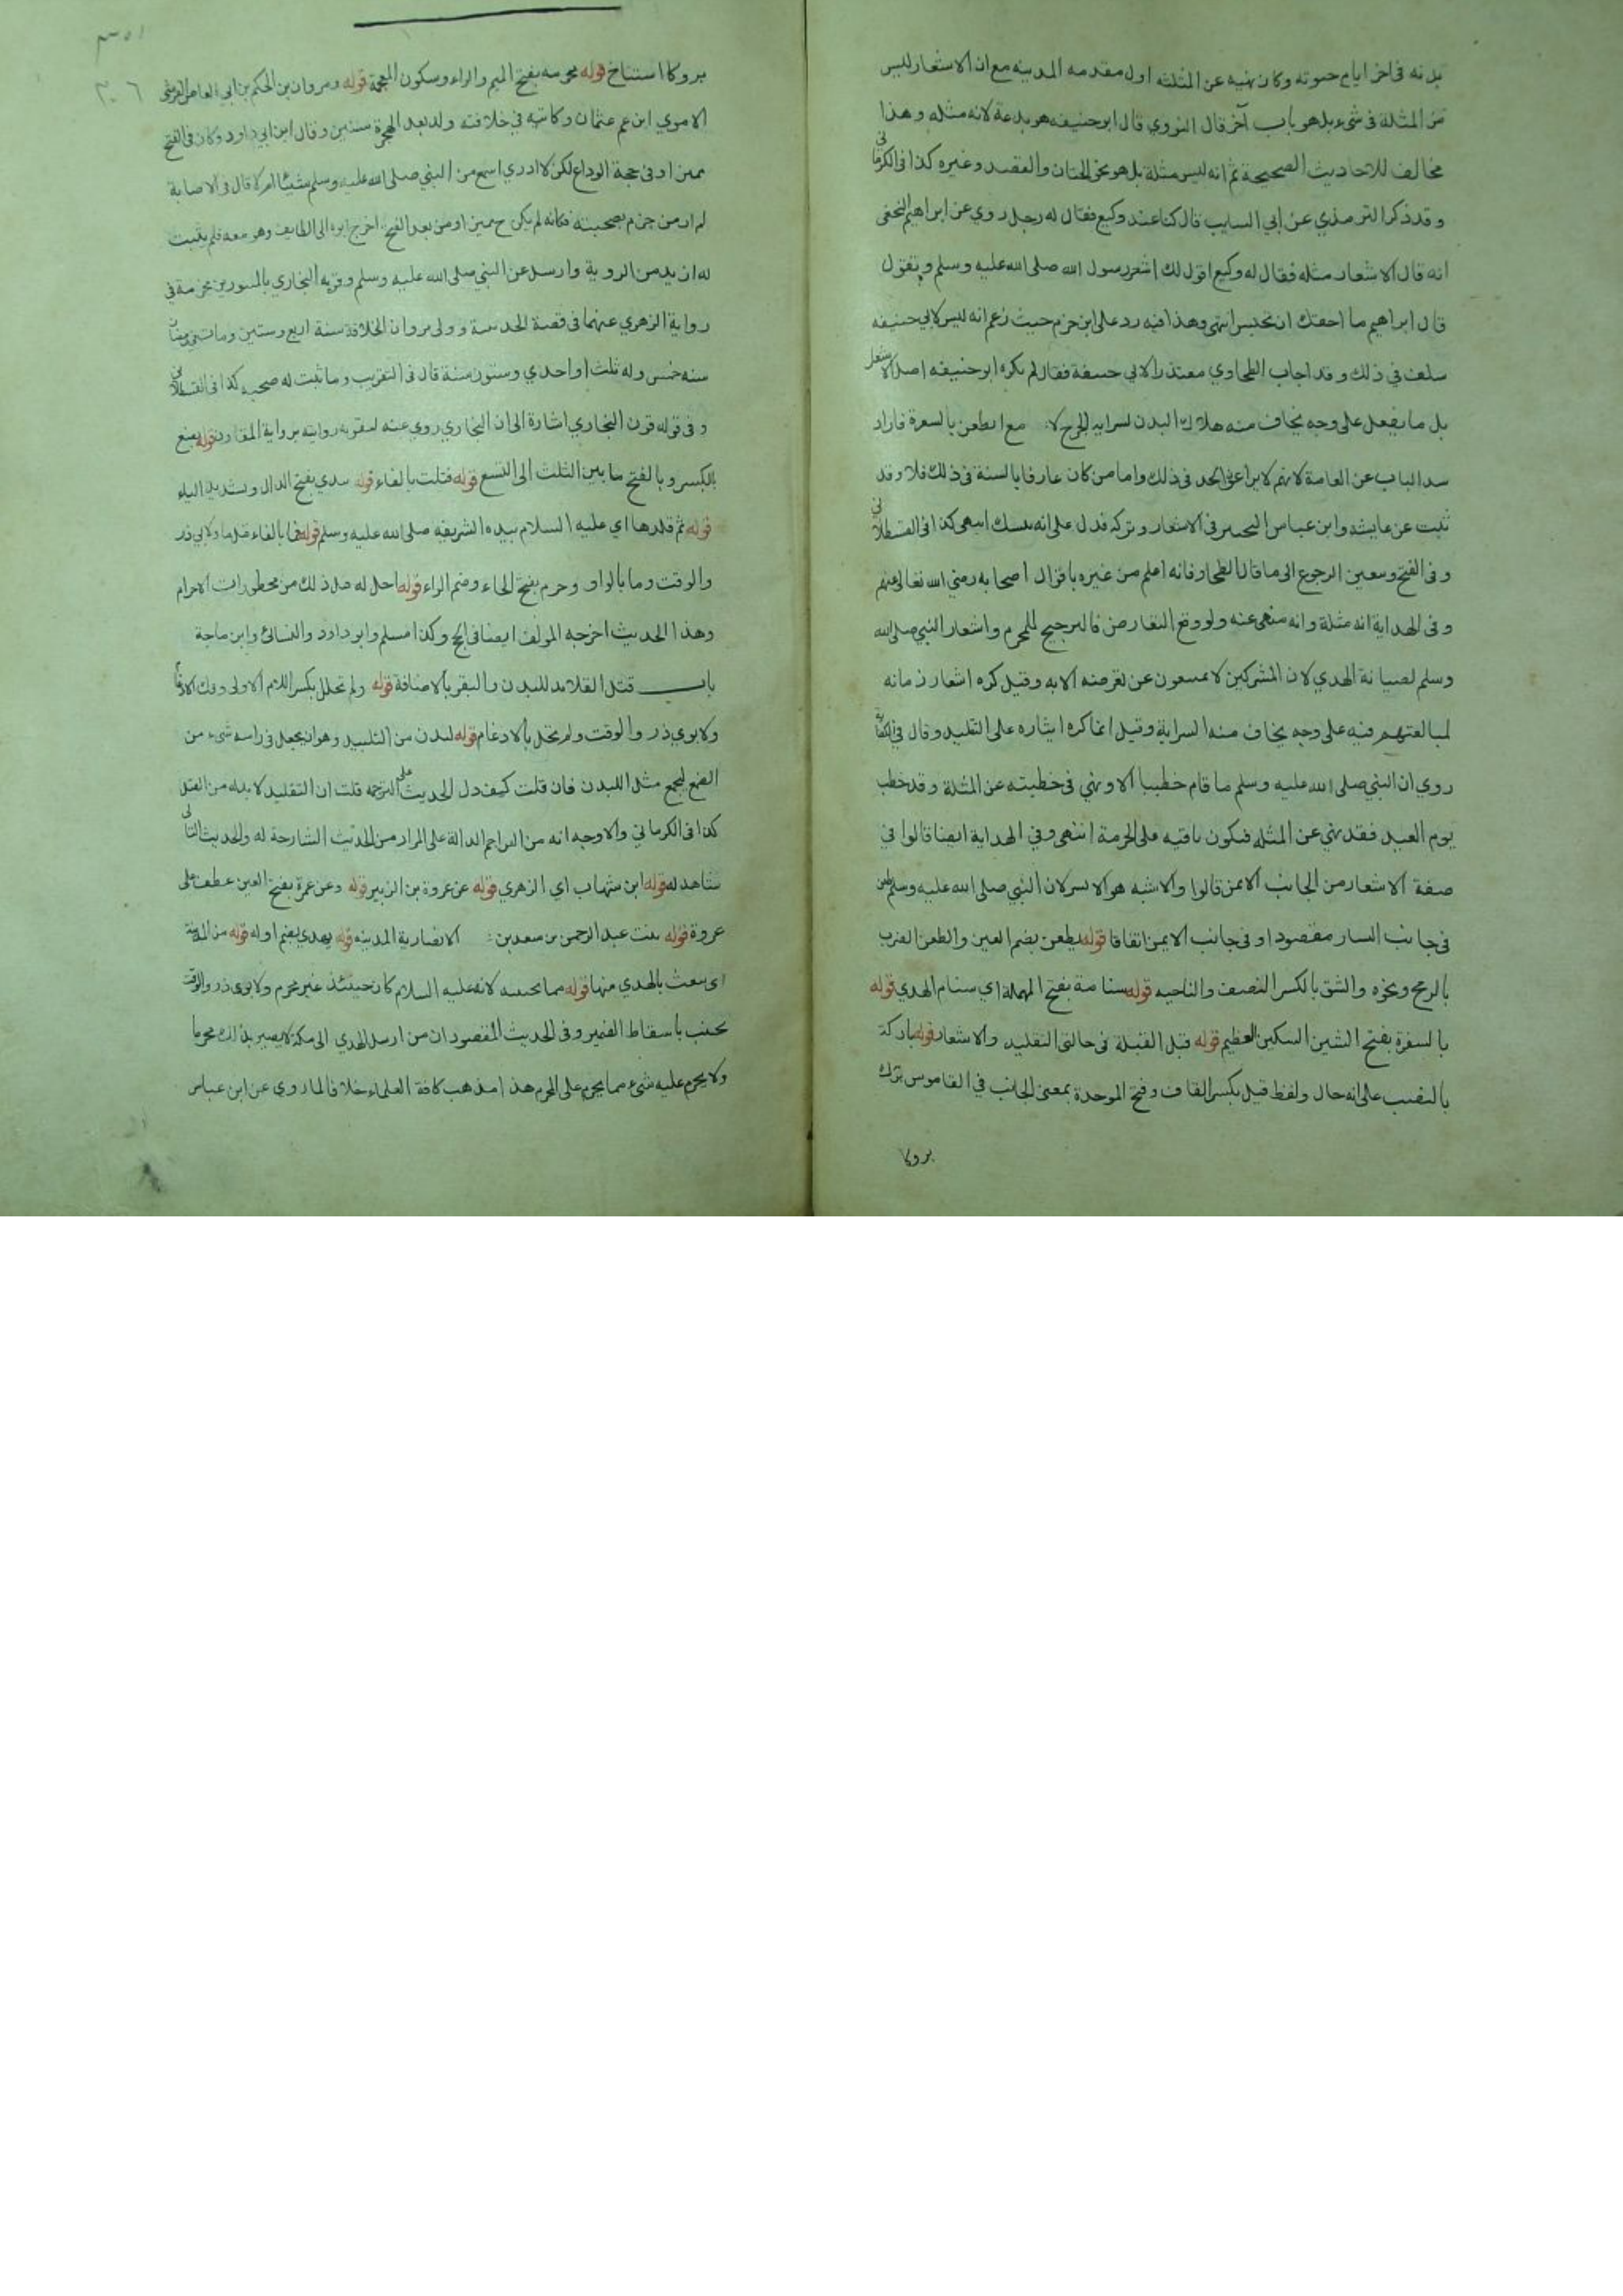 بدنه في اخر ايام حيوته وكان نهيه عن المثلثه اول مقدمه المدينه مع ان الاشعار ليس
من المثلة في شيء بل هو باب آخر قال النووي قال ابو حنيفه هو بدعة لانه مثله وهذا
مخالف للاحاديث الصحيحة ثم انه ليس مثلة بل هو نحو الختان والفصد وغيره كذا في الكرماني
وقد ذكر الترمذي عن ابي السايب قال كنا عند وكيع فقال له رجل روي عن ابراهيم النخعي
انه قال الاشعار مثله فقال له وكيع اقول لك اشعر رسول الله صلى الله عليه وسلم وتقول
قال ابراهيم ما احقك ان تحبس انتهى وهذا فيه رد على ابن حزم حيث زعم انه ليس لابي حنيفه
سلف في ذلك وقد اجاب الطحاوي معتذرا لابي حنيفة فقال لم يكره ابو حنيفه اصل الاشعار
بل ما يفعل على وجه يخاف منه هلاك البدن لسراية الجرح لا مع الطعن بالشفرة فاراد
سد الباب عن العامة لانهم لا يراعون الحد في ذلك واما من كان عارفا بالسنة في ذلك فلا وقد
ثبت عن عايشه وابن عباس التخيير في الاشعار وتركه فدل على انه ليس بنسك انتهى كذا في القسطلاني
وفي الفتح وتعين الرجوع الى ما قال الطحاوي فانه اعلم من غيره باقوال اصحابه رضي الله تعالى عنهم
وفي الهداية انه مثلة وانه منهي عنه ولو وقع التعارض فالترجيح للمحرم واشعار النبي صلى الله
وسلم لصيانة الهدي لان المشركين لا يمتنعون عن تعرضه الا به وقيل كره اشعار زمانه
لمبالغتهم فيه على وجه يخاف منه السراية وقيل انما كره ايثاره على التقليد وقال في الكفاية
روي ان النبي صلى الله عليه وسلم ما قام خطيبا الا ونهي في خطبته عن المثلة وقد خطب
يوم العيد فقد نهي عن المثله فيكون باقيه على الحرمة انتهى وفي الهداية ايضا قالوا في
صفة الاشعار من الجانب الايمن قالوا والاشبه هو الايسر لان النبي صلى الله عليه وسلم طعن
في جانب اليسار مقصودا وفي جانب الايمن اتفاقا قوله يطعن بضم العين والطعن الضرب
بالرمح ونحوه والشق بالكسر النصف والناحيه قوله سنامة بفتح المهملة اي سنام الهدي قوله
بالشفرة بفتح الشين السكين العظيم قوله قبل القبلة في حالتي التقليد والاشعار قوله باركة
بالنصب على انه حال ولفظ قبل بكسر القاف وفتح الموحدة بمعنى الجانب في القاموس برك
بروكا
بروكا استناخ قوله مخرمه بفتح الميم والراء وسكون المعجمة قوله ومروان بن الحكم بن ابي العاص القرشي
الاموي ابن عم عثمان وكاتبه في خلافته ولد بعد الهجرة بسنتين وقال ابن ابي داود وكان في الفتح
مميزا وفي حجة الوداع لكن لا ادري اسمع من النبي صلى الله عليه وسلم شيئا ام لا قال في الاصابة
لم ار من جزم بصحبته فكانه لم يكن ح مميزا ومن بعد الفتح اخرج ابوه الى الطايف وهو معه فلم يثبت
له ازيد من الروية وارسل عن النبي صلى الله عليه وسلم وقرنه البخاري بالمسور بن مخرمة في
رواية الزهري عنهما في قصة الحديبية وولي مروان الخلافة سنة اربع وستين ومات في رمضان
سنه خمس وله ثلث او احدي وستون سنة قال في التقريب وما ثبت له صحبه كذا في القسطلاني
وفي قوله قرن البخاري اشارة الى ان البخاري روي عنه لمقرونه روايته برواية المقارن قوله بضع
بالكسر وبالفتح ما بين الثلث الى التسع قوله فتلت بالفاء قوله بيدي بفتح الدال وتشديد الياء
قوله ثم قلدها اي عليه السلام بيده الشريفه صلى الله عليه وسلم قوله فما بالفاء ولابي ذر
والوقت وما بالواو وحرم بفتح الحاء وضم الراء قوله احل له قبل ذلك من محظورات الاحرام
وهذا الحديث اخرجه المولف ايضا في الحج وكذا مسلم وابو داود والنسائي وابن ماجة
باب فتل القلائد للبدن والبقر بالاضافة قوله ولم تحلل بكسر اللام الاولى وفك الادغام
ولابوي ذر والوقت ولم تحل بالادغام قوله لبدت من التلبيد وهو ان يجعل في راسه شيء من
الصمغ ليجمع مثل اللبد فان قلت كيف دل الحديث على الترجمة قلت ان التقليد لا بد له من الفتل
كذا في الكرماني والاوجه انه من التراجم الدالة على المراد من الحديث الشارحة له والحديث الثاني
شاهد له قوله ابن شهاب اي الزهري قوله عن عروة بن الزبير قوله وعن عمرة بفتح العين عطف على
عروة قوله بنت عبد الرحمن بن سعد بن الانصارية المدينه قوله يهدي بضم اوله قوله من المدينة
اي يبعث بالهدي منها قوله مما يجتنبه لانه عليه السلام كان حينئذ غير محرم ولابوي ذر والوقت
يجتنب باسقاط الضمير وفي الحديث المقصود ان من ارسل الهدي الى مكة لا يصير بذلك محرما
ولا يحرم عليه شيء مما يحرم على المحرم هذا مذهب كافة العلماء خلافا لما روي عن ابن عباس